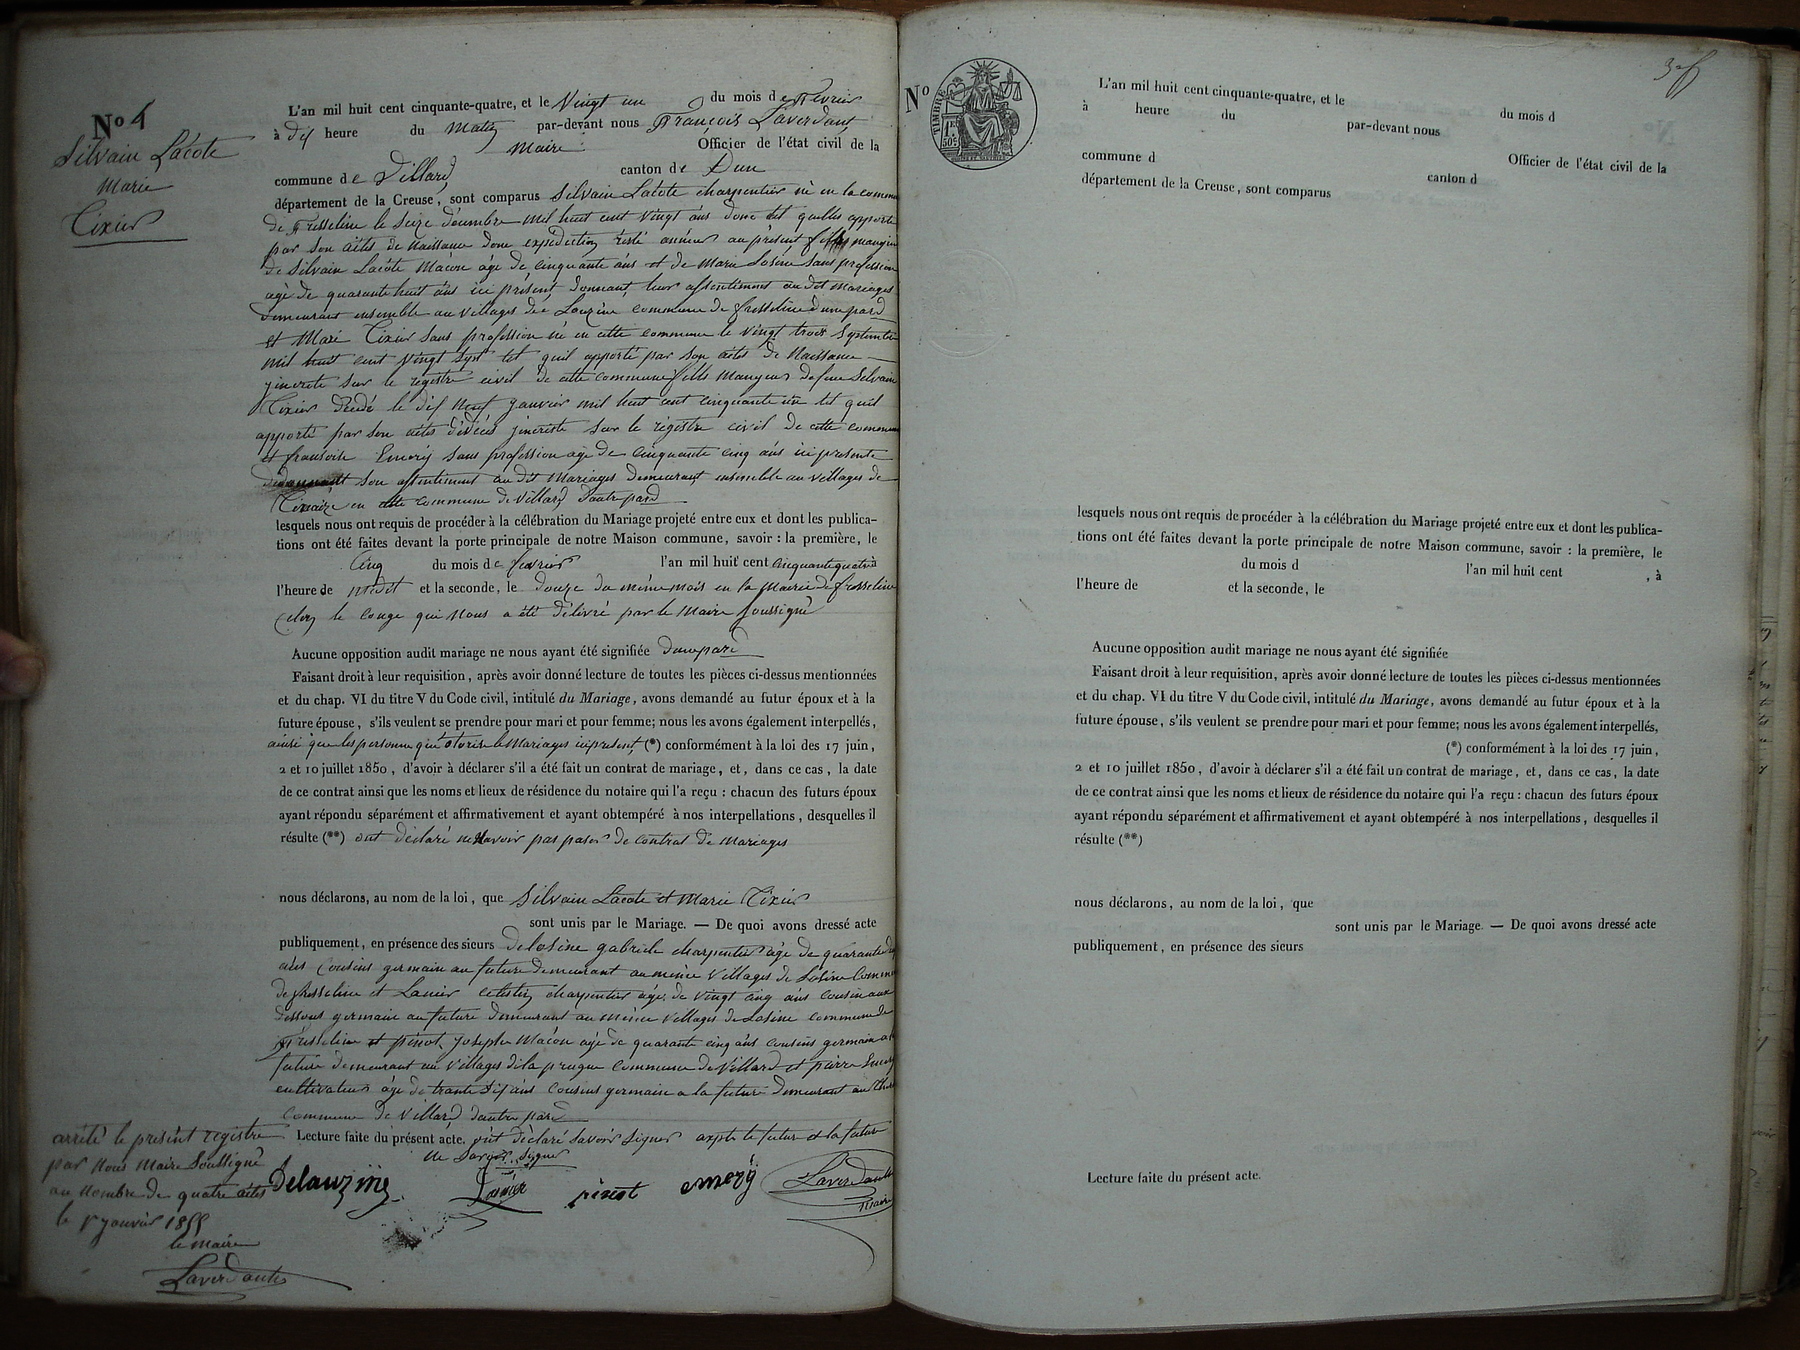 No 4
Silvain Lacote
Marie
Tixier
L'an mil huit cent cinquante-quatre, et le Vingt un du mois de fevrier
à dix heure du Matin par-devant nous François Laverdant
Maire Officier de l'état civil de la
commune de Villard canton de Dun
département de la Creuse, sont comparus Silvain Lacote charpentier né en la commune
de Fresseline le Seize décembre mil huit cent vingt ans donc tel quelles apporte
par son actes de Naissance donc expedection resté annéxé au présent fills mangeur
de Silvain Lacote Macon age de cinquante ans et de Marie Losine Sans profession
agé de quarante huit ans ici présent donnant leur assentiement au dit Mariages
demeurant ensemble au villages de commune de fresseline d'une pard
et Marie Tixier Sans profession né en cette commune le vingt trois Systembre
mil huit cent vingt Sept tel quil apporté par son actes de Naissance
jincrete sur le registre civil de cette commune fills Mangeur de feue Silvain
Tixier Dédé le dix Neuf Janvier mil huit cent cinquante un tel quil
apporté par son actes d'décés jincriste Sur le régistre civil de cette commune
et françoise Emery Sans profession age de cinquante cinq ans ici présente
son assentiement au dit Mariages Demeurant ensemble au villages de
en cette commune de Villard d'autre pard
lesquels nous ont requis de procéder à la célébration du Mariage projeté entre eux et dont les publica-
tions ont été faites devant la porte principale de notre Maison commune, savoir : la première, le
Cinq du mois de fevrier l'an mil huit cent cinquante quatre à
l'heure de midit et la seconde, le douze du même mois en la Mairie de fresseline
celon le conge qui Nous a été délivré par le Maire Soussigné
Aucune opposition audit mariage ne nous ayant été signifiée dune pard
Faisant droit à leur requisition, après avoir donné lecture de toutes les pièces ci-dessus mentionnées
et du chap. VI du titre V du Code civil, intitulé du Mariage, avons demandé au futur époux et à la
future épouse, s'ils veulent se prendre pour mari et pour femme; nous les avons également interpellés,
ainsi que les personne qui otorise le Mariages ici présent (*) conformément à la loi des 17 juin,
2 et 10 juillet 1850, d'avoir à déclarer s'il a été fait un contrat de mariage, et, dans ce cas, la date
de ce contrat ainsi que les noms et lieux de résidence du notaire qui l'a reçu : chacun des futurs époux
ayant répondu séparément et affirmativement et ayant obtempéré à nos interpellations, desquelles il
résulte (**) ont déclaré ne avoir pas passer de contrat de Mariages
nous déclarons, au nom de la loi, que Silvain Lacote et Marie Tixier
sont unis par le Mariage. — De quoi avons dressé acte
publiquement, en présence des sieurs delosine gabriele charpentier age de quarante
ans cousins germain au future demeurant au même villages de Losine Commune
de fresseline et Lanier celestin charpentier age de vingt cinq ans cousin aux
dessous germain au future demeurant au même villages de Losine commune de
Fresseline et pinot Joseph Macon age de quarante cinq ans cousins germain a la
future demeurant au villages de la prugne commune de Villard et pierre Emery
cultivateur age de trante dix ans cousins germain a la future demeurant au
commune de Villard dautre pard
Lecture faite du présent acte. ont déclaré savoir signer axpté le futur et la future
Ne Savoir Signer
Delauzine Lanier pinot emery Laverdant
Maire
arrété le present registre
par Nous Maire Soussigné
au Nombre de quatre actes
le 1 Janvier 1855
le Maire
Laverdant
3 f
No
TIMBRE
1F.
50c.
L'an mil huit cent cinquante-quatre, et le du mois d
à heure du par-devant nous
Officier de l'état civil de la
commune d canton d
département de la Creuse, sont comparus
lesquels nous ont requis de procéder à la célébration du Mariage projeté entre eux et dont les publica-
tions ont été faites devant la porte principale de notre Maison commune, savoir : la première, le
du mois d l'an mil huit cent , à
l'heure de et la seconde, le
Aucune opposition audit mariage ne nous ayant été signifiée
Faisant droit à leur requisition, après avoir donné lecture de toutes les pièces ci-dessus mentionnées
et du chap. VI du titre V du Code civil, intitulé du Mariage, avons demandé au futur époux et à la
future épouse, s'ils veulent se prendre pour mari et pour femme; nous les avons également interpellés,
(*) conformément à la loi des 17 juin,
2 et 10 juillet 1850, d'avoir à déclarer s'il a été fait un contrat de mariage, et, dans ce cas, la date
de ce contrat ainsi que les noms et lieux de résidence du notaire qui l'a reçu : chacun des futurs époux
ayant répondu séparément et affirmativement et ayant obtempéré à nos interpellations, desquelles il
résulte (**)
nous déclarons, au nom de la loi, que
sont unis par le Mariage. — De quoi avons dressé acte
publiquement, en présence des sieurs
Lecture faite du présent acte.